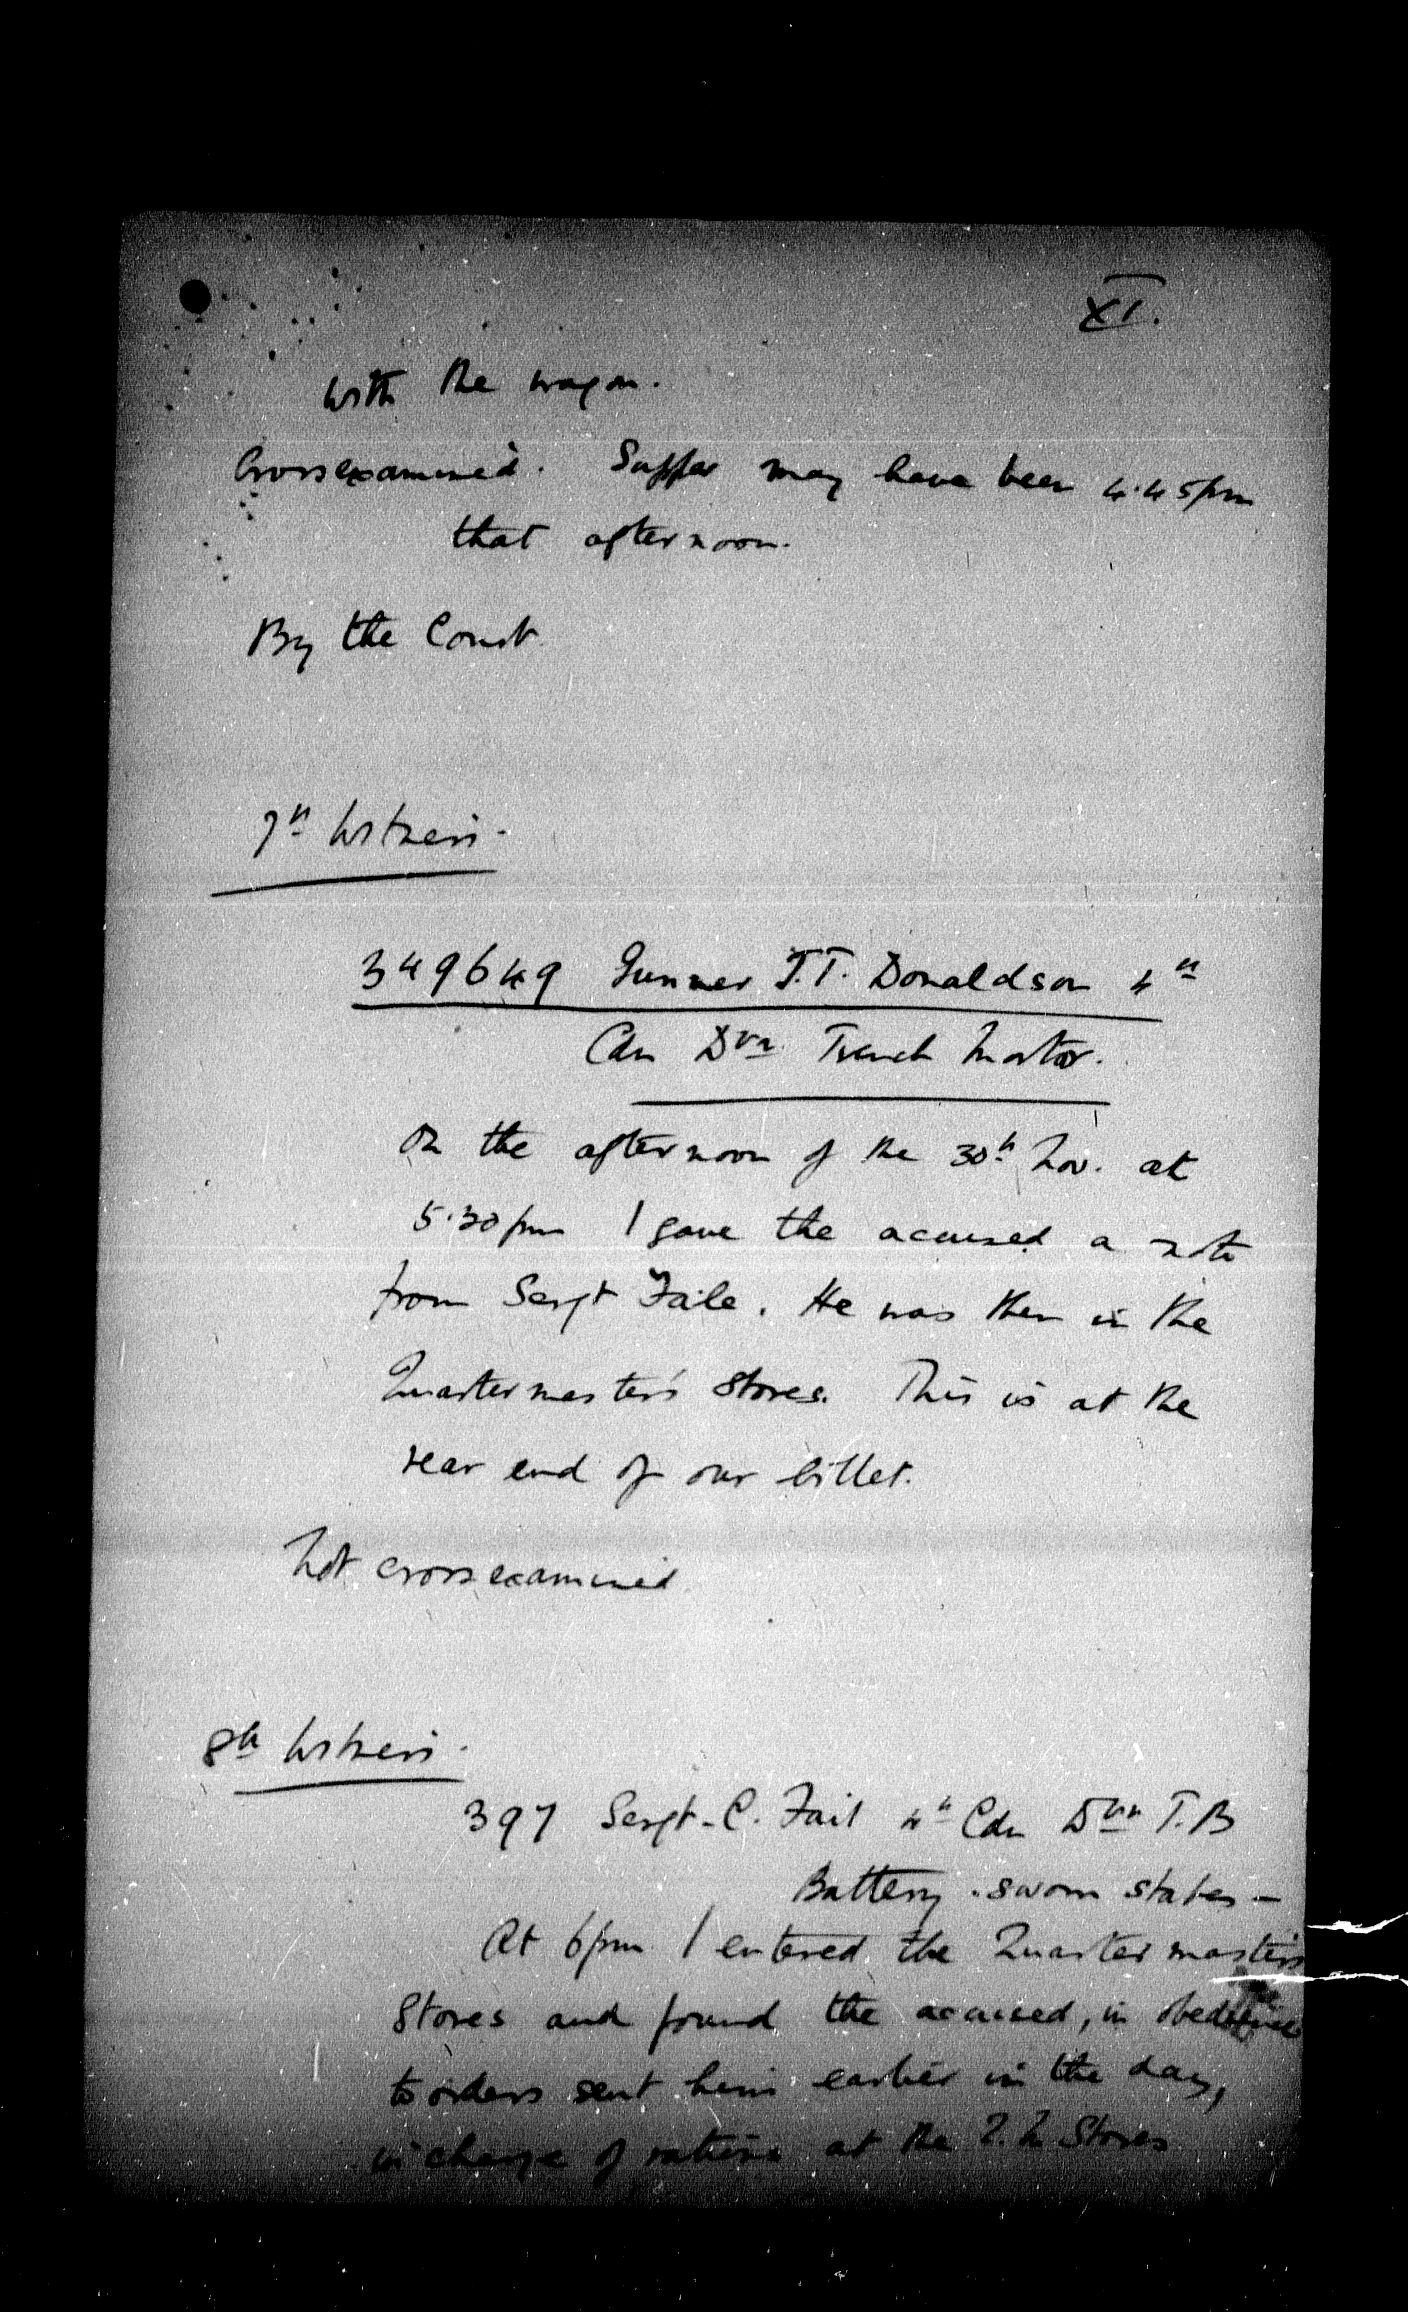 XI.
with the wagon.
Crossexamined. Supper may have been 4.45pm
that afternoon.
By the Court
7th Witness.
349649 Gunner T.T. Donaldson 4th
Cdn Divn Trench Mortar.
On the afternoon of the 30th Nov. at
5.30pm I gave the accused a note
from Sergt Faile. He was then in the
Quartermaster's Stores. This is at the
rear end of our billet.
Not crossexamined
8th Witness.
397 Sergt. C. Fail 4th Cdn Divn T.B
Battery. sworn states -
At 6pm I entered the Quartermaster's
Stores and found the accused, in obedience
to orders sent him earlier in the day,
in charge of rations at the Q.M Stores